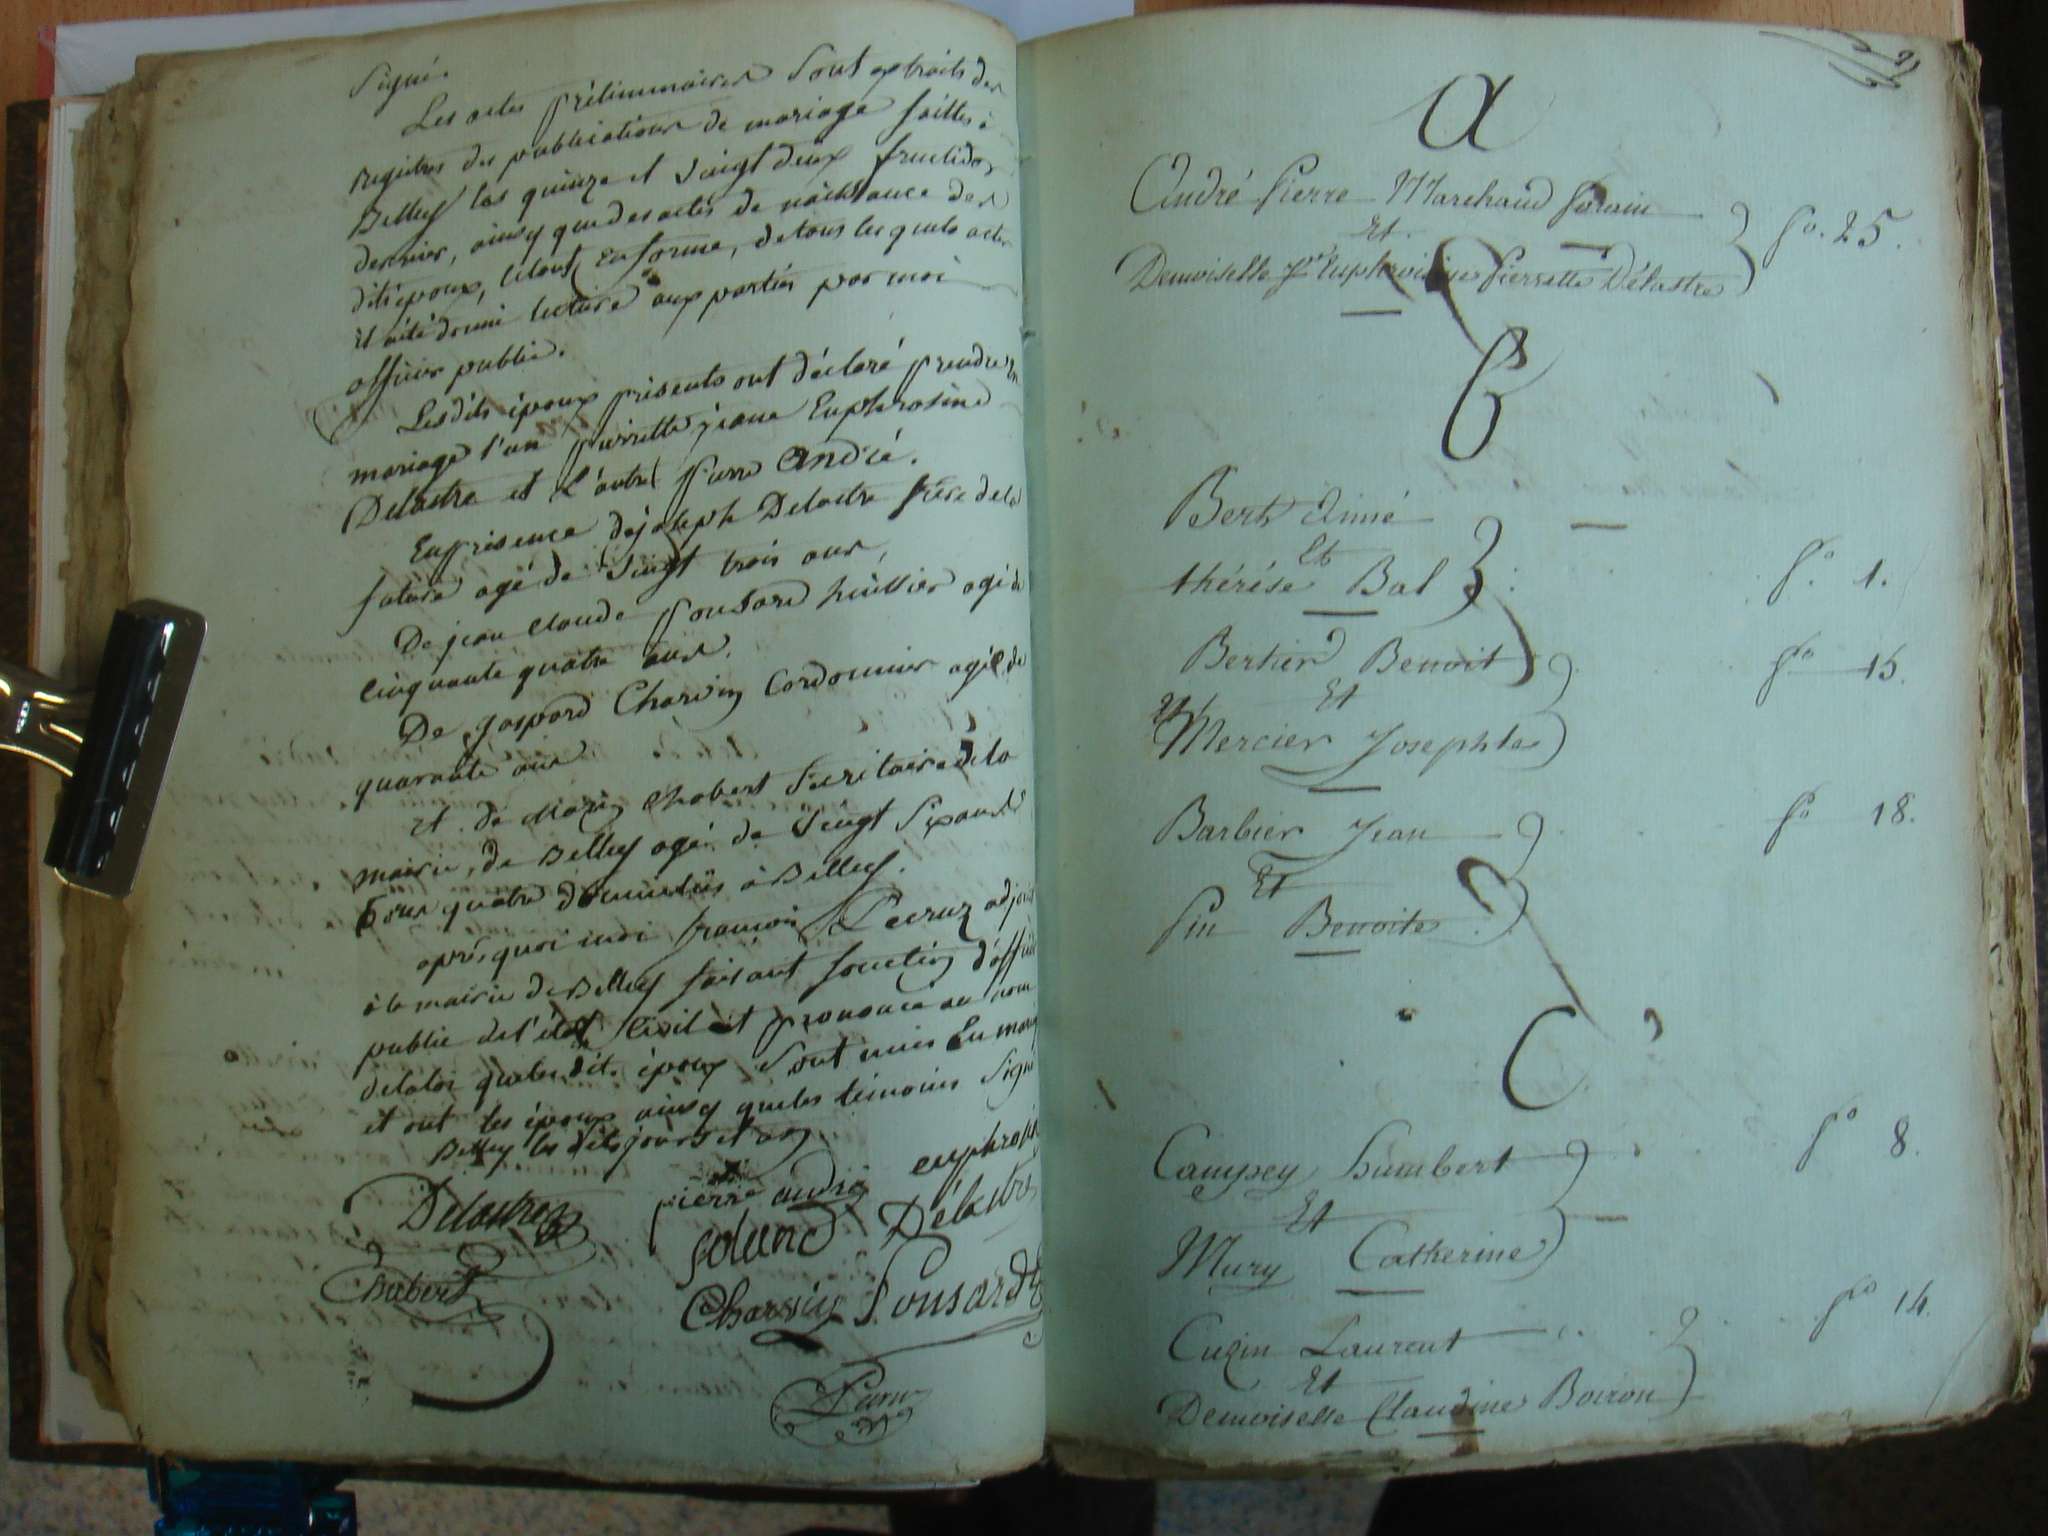 signé.
Les actes préliminaires sont extraits des
registres des publications de mariage faittes à
Belley les quinze et vingt deux fructidor
dernier, ainsy que des actes de naissance des
dits époux, le tout en forme, de tous lesquels actes
il a été donné lecture aux parties par moi
officier public.
Lesdits époux présents ont déclaré prendre en
mariage l'un pierrette jeane Euphrosine
Delastre et L'autre pierre André.
En présence de joseph Delastre frère de la
future agé de vingt trois ans,
De jean claude ponsard huissier agé de
cinquante quatre ans.
De gaspard Charvin Cordonnier agé de
quarante ans
et de Marin Chabert Secritaire de la
mairie, de Belley agé de vingt six ans
tous quatre domiciliés à Belley.
après quoi moi françois Pecruz adjoint
à la mairie de Belley faisant fonction d'officier
public de l'état civil ait prononcé au nom
de la loi que les dits époux sont unis En mariage
et ont les époux ainsy que les témoins signé
Belley les dits jours et an
Delastre pierre andré euphrosine
Délastre
Chabert Charvin Ponsard
A
André Pierre Marchand forain
Et fo. 25.
Demoiselle Jne Euphroisine Pierrette Délastre
B
Bert Aimé
Et
thérése Bal fo 1.
Bertier Benoit fo 15.
Et
Mercier Josephte
Barbier Jean fo 18.
Et
Pin Benoite
C
Campsey humbert fo 8.
Et
Mury Catherine
Cugin Laurent fo 14.
Et
Demoiselle Claudine Boiron